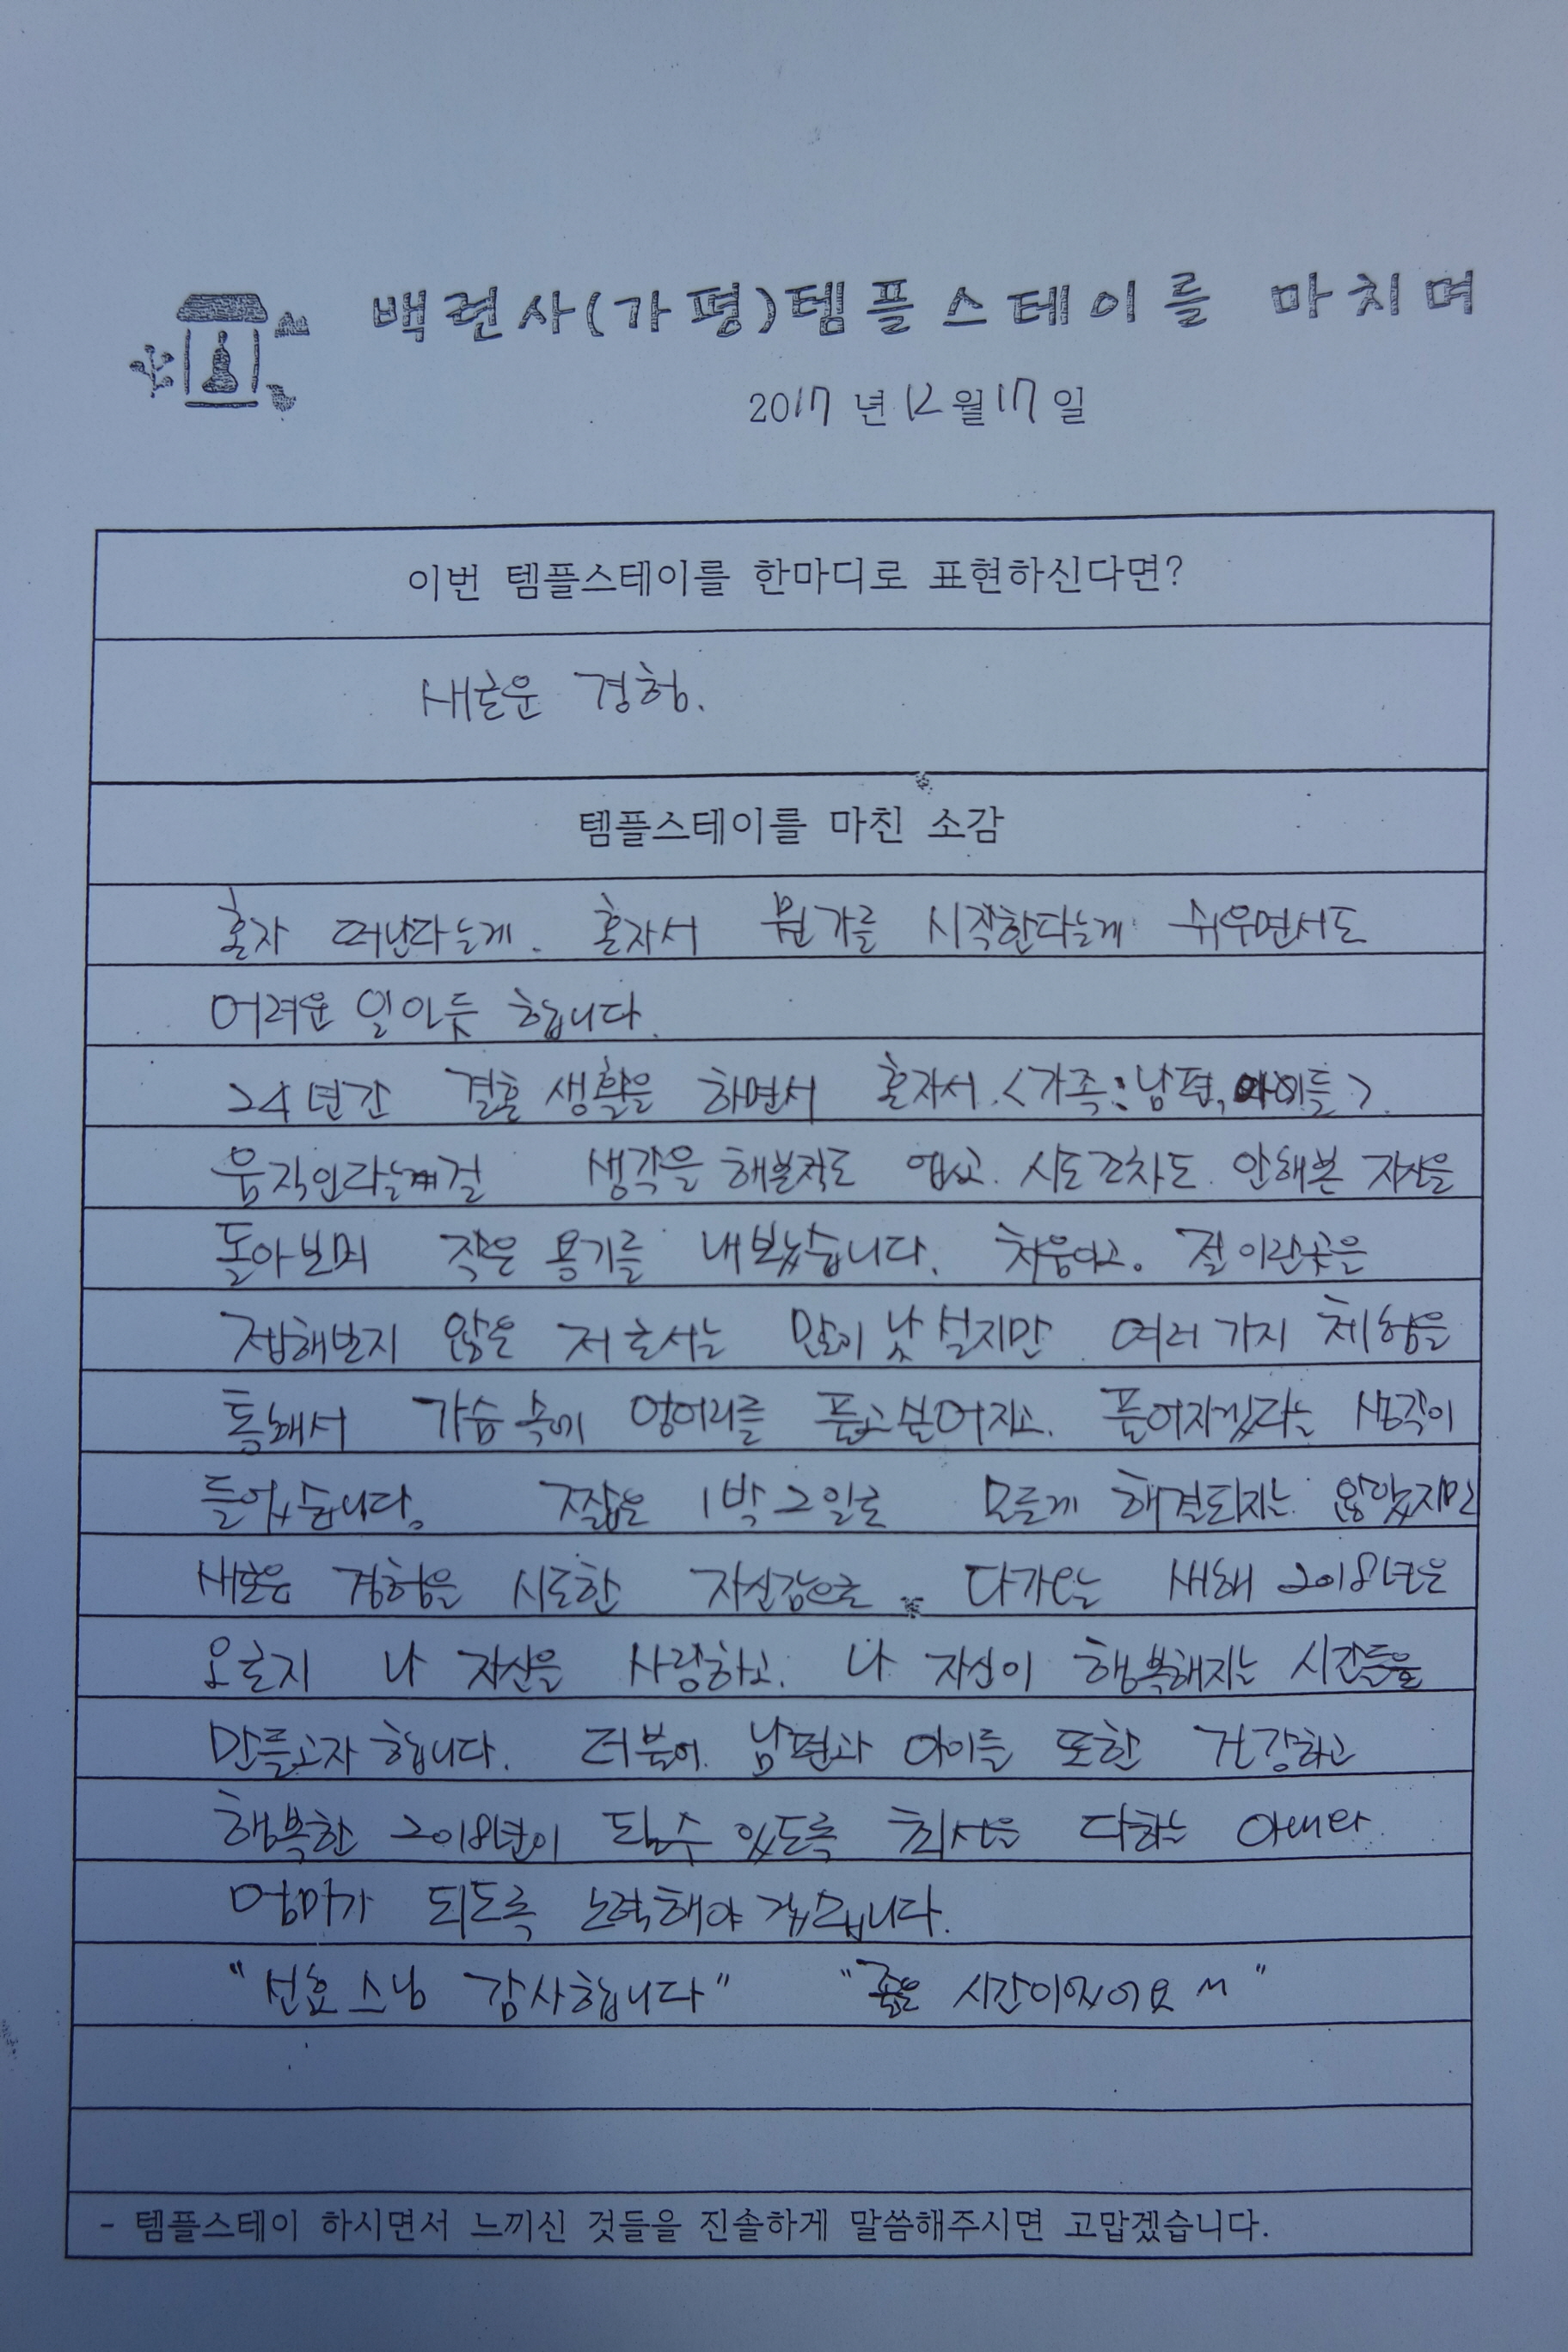 백련사(가평)템플스테이를 마치며
2017 년 12 월 17 일
이번 템플스테이를 한마디로 표현하신다면?
새로운 경험.
템플스테이를 마친 소감
혼자 떠난다는게. 혼자서 뭔가를 시작한다는게 쉬우면서도
어려운 일인듯 합니다.
24년간 결혼생활을 하면서 혼자서.<가족:남편, 아이들>.
움직인다는걸 생각을 해본적도 없고. 시도조차도 안해본 자신을
돌아보며 작은 용기를 내보았습니다. 처음이고. 절이란곳은
접해보지 않은 저로서는 많이 낯설지만 여러가지 체험을
통해서 가슴속에 멍어리를 풀고싶어지고. 풀어지겠다는 생각이
들었습니다. 짧은 1박2일로 모든게 해결되지는 않았지만
새로운 경험을 시도한 자신감으로 다가오는 새해 2018년은
오로지 나 자신을 사랑하고. 나 자신이 행복해지는 시간들을
만들고자 합니다. 더불어 남편과 아이들 또한 건강하고
행복한 2018년이 될수 있도록 최선을 다하는 아내와
엄마가 되도록 노력해야겠습니다.
"선호스님 감사합니다" "좋은 시간이였어요 ~"
- 템플스테이 하시면서 느끼신 것들을 진솔하게 말씀해주시면 고맙겠습니다.